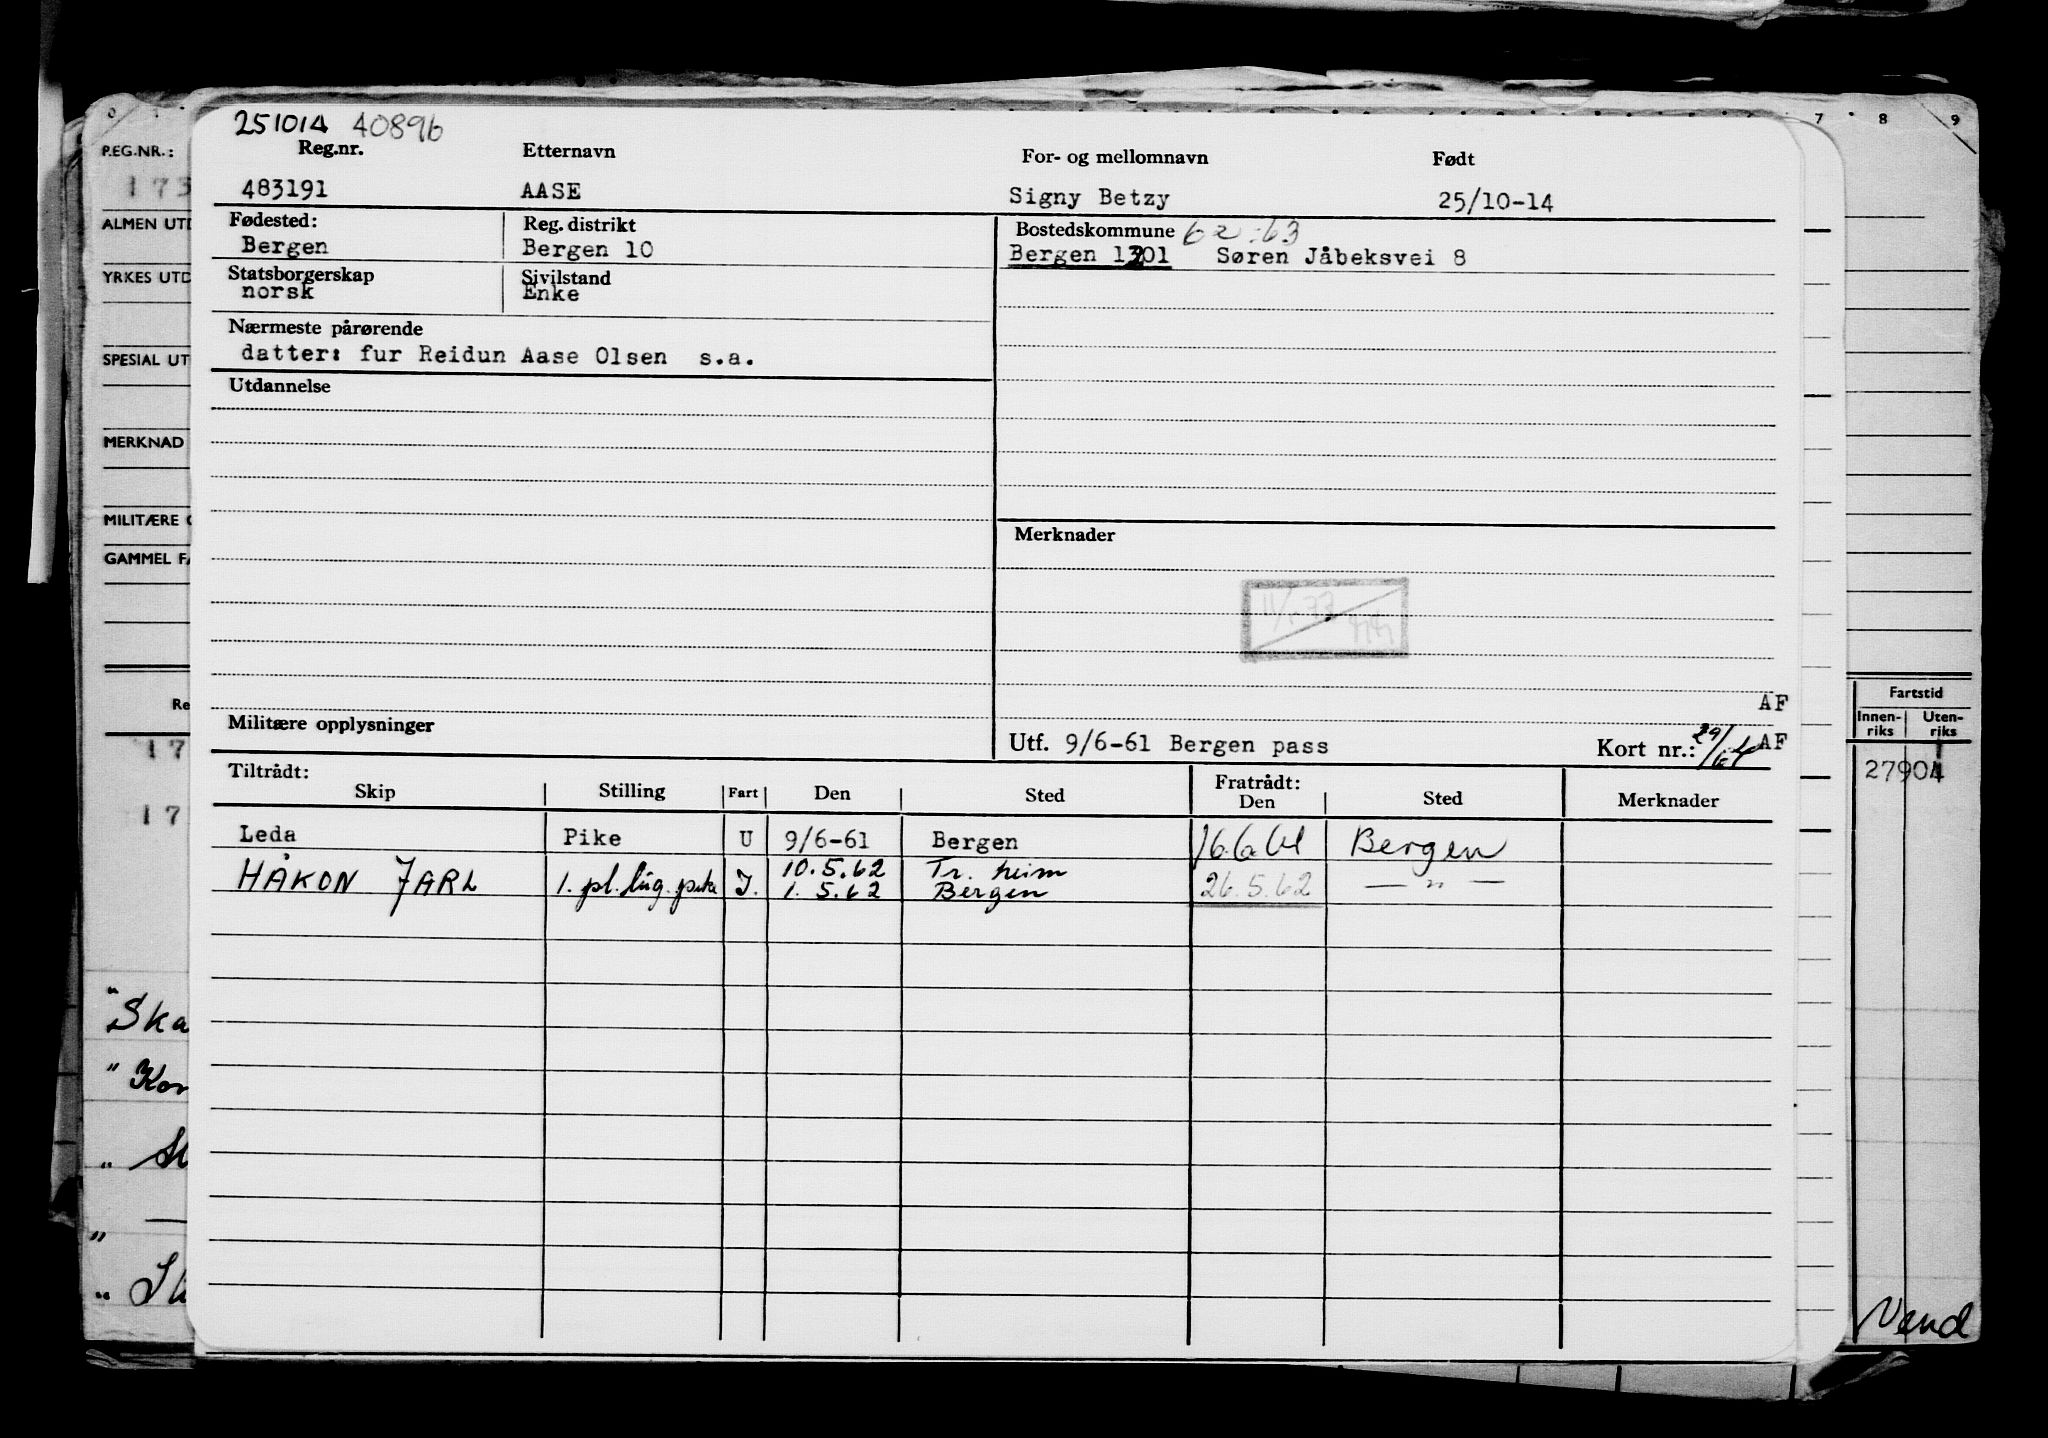 251014 40896
Reg.nr. Etternavn For- og mellomnavn Født
483191 AASE Signy Betzy 25/10-14
Fødested: Reg. distrikt Bostedskommune 62-63
Bergen Bergen 10 Bergen 1301 Søren Jåbeksvei 8
Statsborgerskap Sivilstand
norsk Enke
Nærmeste pårørende
datter: fur Reidun Aase Olsen s.a.
Utdannelse
Merknader
11/1-77
AF
Militære opplysninger
Utf. 9/6-61 Bergen pass Kort nr.: 29/64 AF
Tiltrådt: Fratrådt:
Skip Stilling Fart Den Sted Den Sted Merknader
Leda Pike U 9/6-61 Bergen 16.6.61 Bergen
10.5.62 Tr.heim
HÅKON JARL 1. pl. lug. pike I. 1.5.62 Bergen 26.5.62 — " —
0 7 8 9
REG.NR.:
173
ALMEN UTD
YRKES UTD
SPESIAL UT
MERKNAD
MILITÆRE
GAMMEL FA
Re
17
17
"Ska
"Kor
"
"
"
Fartstid
Innen-riks Uten-riks
27904
Vend